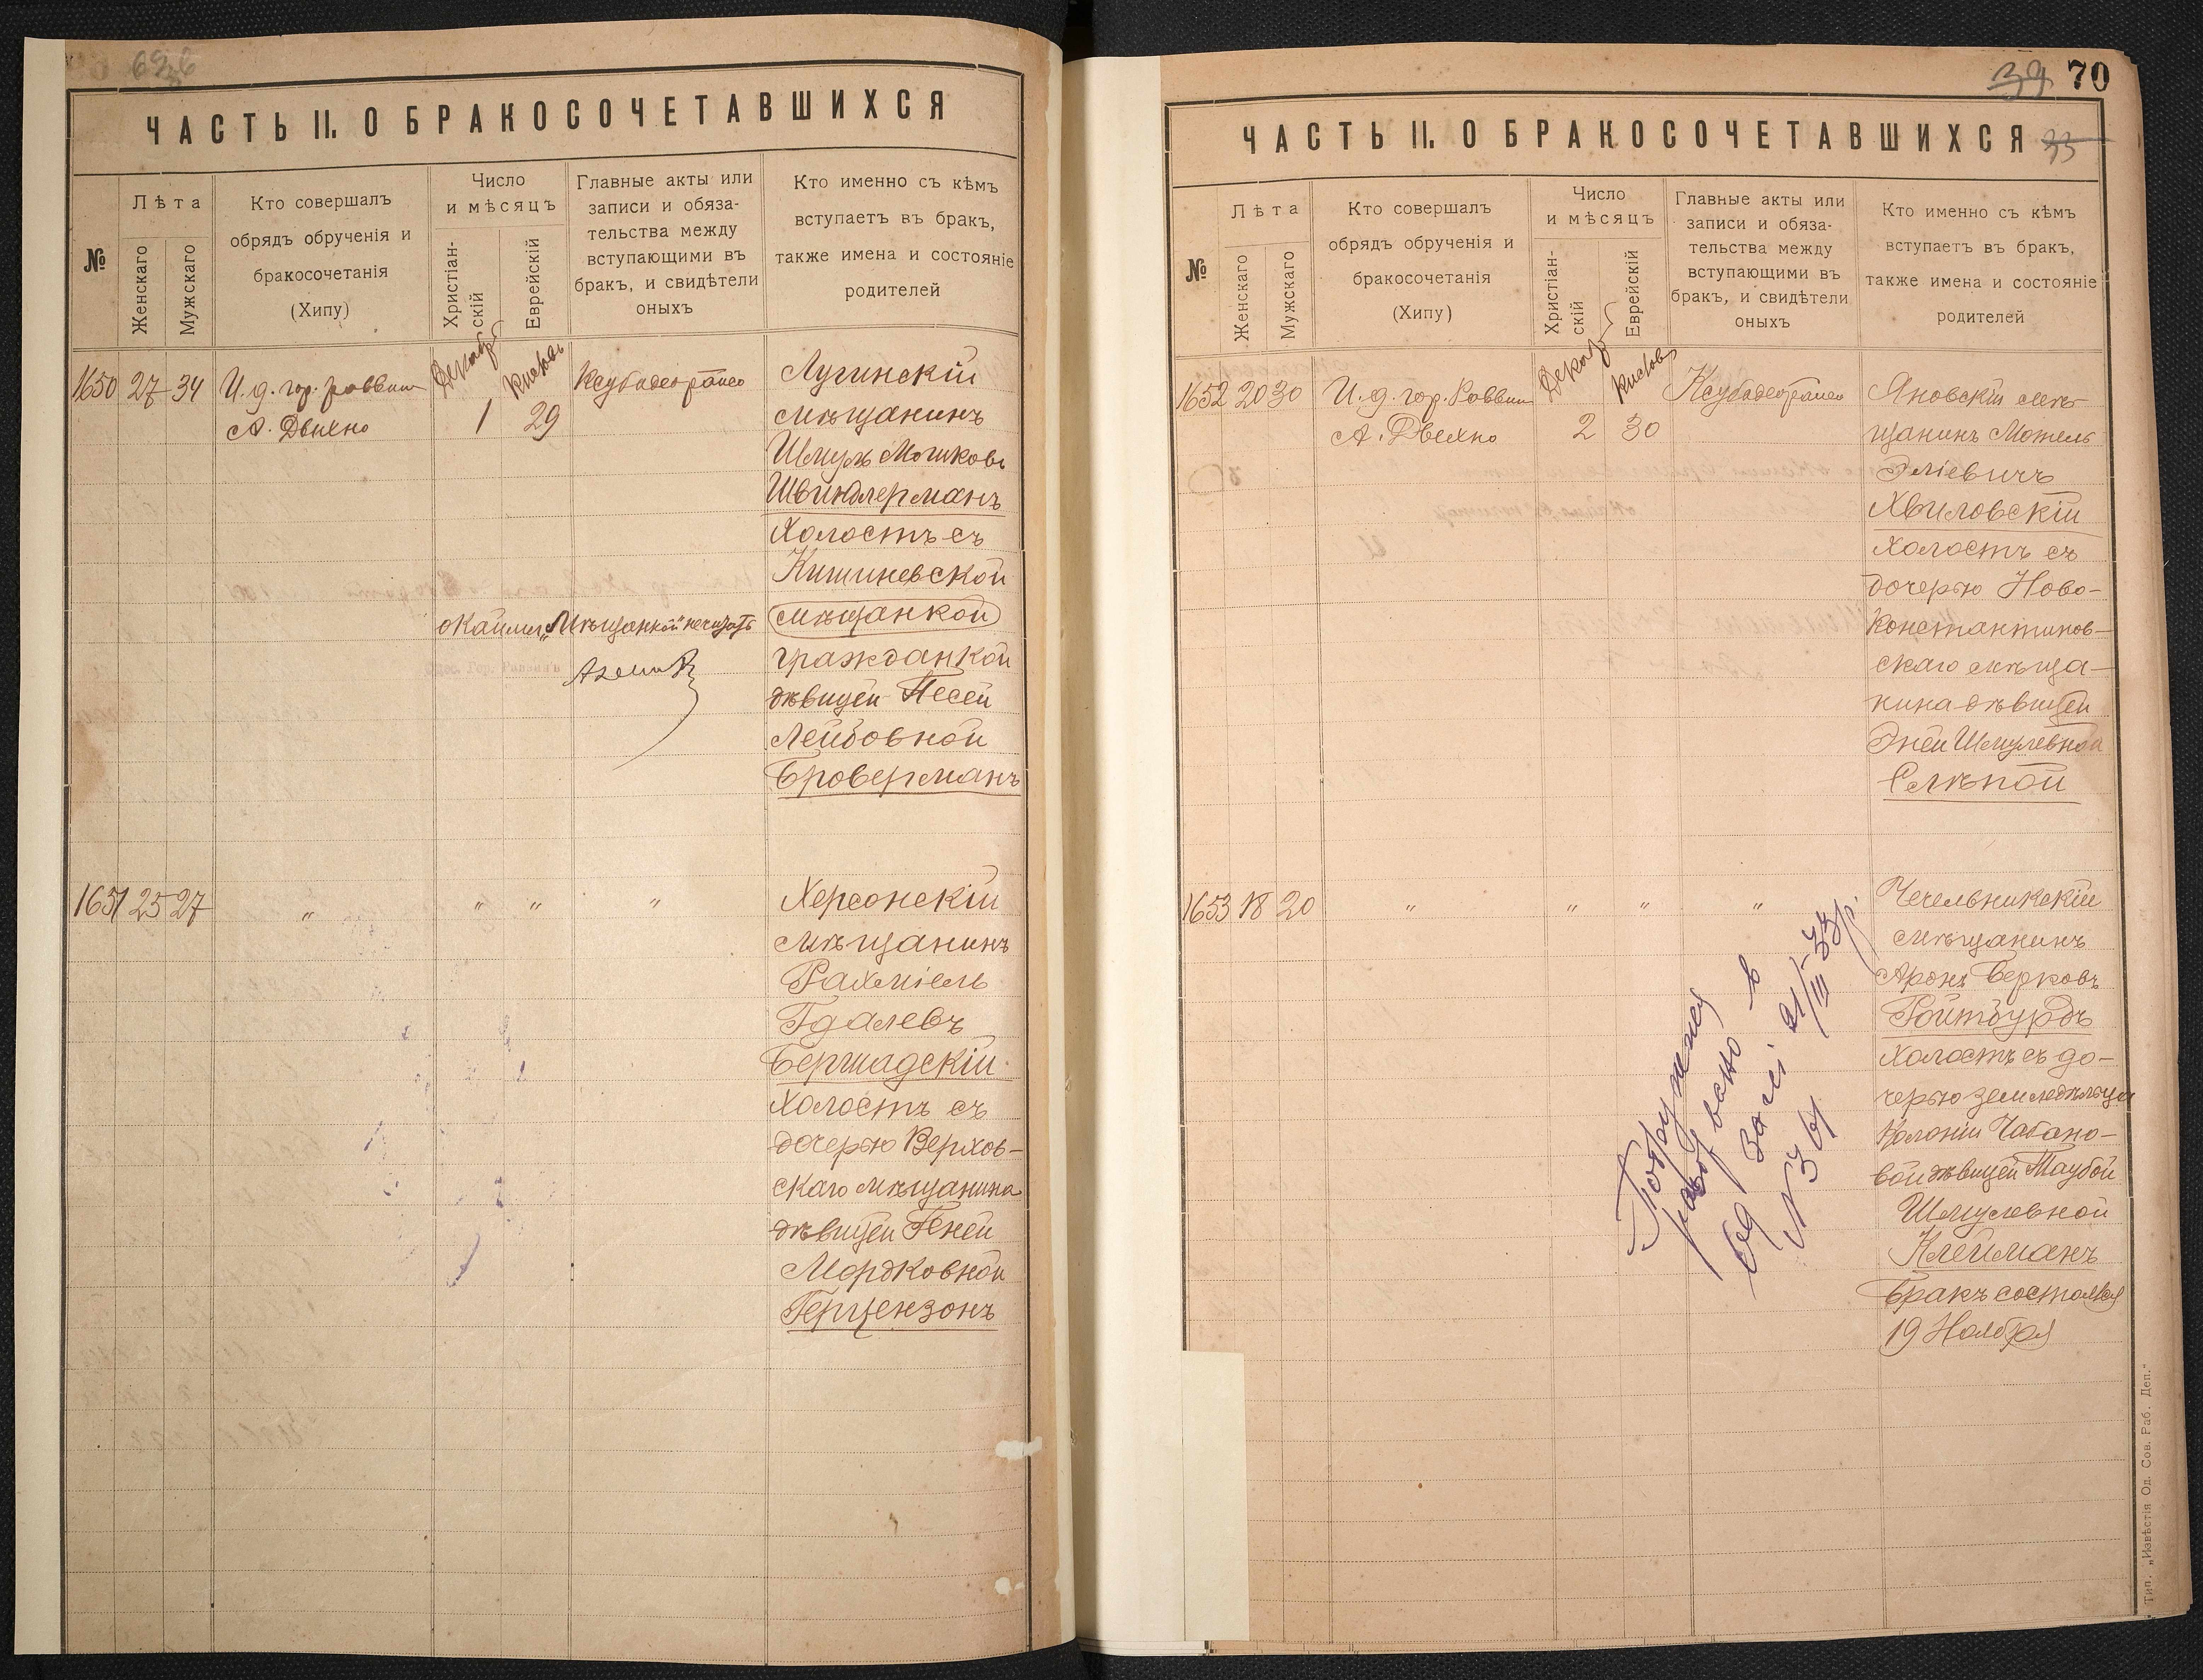 ЧАСТЬ II. О БРАКОСОЧЕТАВШИХСЯ
№
Лѣта
Женскаго
Мужскаго
Кто совершалъ
обрядъ обрученія и
бракосочетанія
(Хипу)
Число
и мѣсяцъ
Христіан-
скій
Еврейскій
Главные акты или
записи и обяза-
тельства между
вступающими въ
бракъ, и свидѣтели
оныхъ
Кто именно съ кѣмъ
вступаетъ въ бракъ,
также имена и состояніе
родителей
1650 27 34 И. д. гор. раввина
Декабр Кислевъ
А. 1 29
Лугинскій
мѣщанинъ
Шмуль Мошковъ
Швиндлерманъ
Холостъ съ
Кишиневской
окаймл. „Мѣщанкой" не читать (мѣщанкой)
гражданкой
дѣвицей Песей
Лейбовной
Броверманъ
1651 25 27 " " " "
Херсонскій
мѣщанинъ
Рахміель
Гдалевъ
Бершадскій
Холостъ съ
дочерью Верхов-
скаго мѣщанина
дѣвицей Геней
Мордковной
Герцензонъ
39 70
ЧАСТЬ II. О БРАКОСОЧЕТАВШИХСЯ 33
№
Лѣта
Женскаго
Мужскаго
Кто совершалъ
обрядъ обрученія и
бракосочетанія
(Хипу)
Число
и мѣсяцъ
Христіан-
скій
Еврейскій
Главные акты или
записи и обяза-
тельства между
вступающими въ
бракъ, и свидѣтели
оныхъ
Кто именно съ кѣмъ
вступаетъ въ бракъ,
также имена и состояніе
родителей
1652 20 30 И. д. гор. Раввина
Декабр Кислевъ
А. 2 30
Яновскій мѣ-
щанинъ Мотель
Эліевичъ
Хвиловскій
Холостъ съ
дочерью Ново-
Константинов-
скаго мѣща-
нина дѣвицей
Эней Шмулевной
Слѣпой
1653 18 20 " " " "
Чечельникскій
мѣщанинъ
Аронъ Берковъ
Ройтбурдъ
Холостъ съ до-
черью земледѣльца
Колоніи Чабано-
вой дѣвицей Таубой
Шмулевной
Клейманъ
Бракъ состоялся
19 Ноября
21/III-33р.
N 361
Тип. „Извѣстія Од. Сов. Раб. Деп."